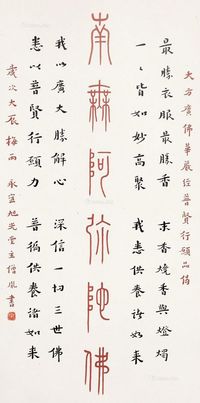 大方廣佛華嚴經普賢行願品偈
最勝衣服最勝香 末香燒香與燈燭
一一皆如妙高聚 我悉供養諸如來
南無阿弥陀佛
我以廣大勝解心 深信一切三世佛
悉以普賢行願力 普徧供養諸如來
歲次大辰梅雨 永宣旭光室主僧胤書